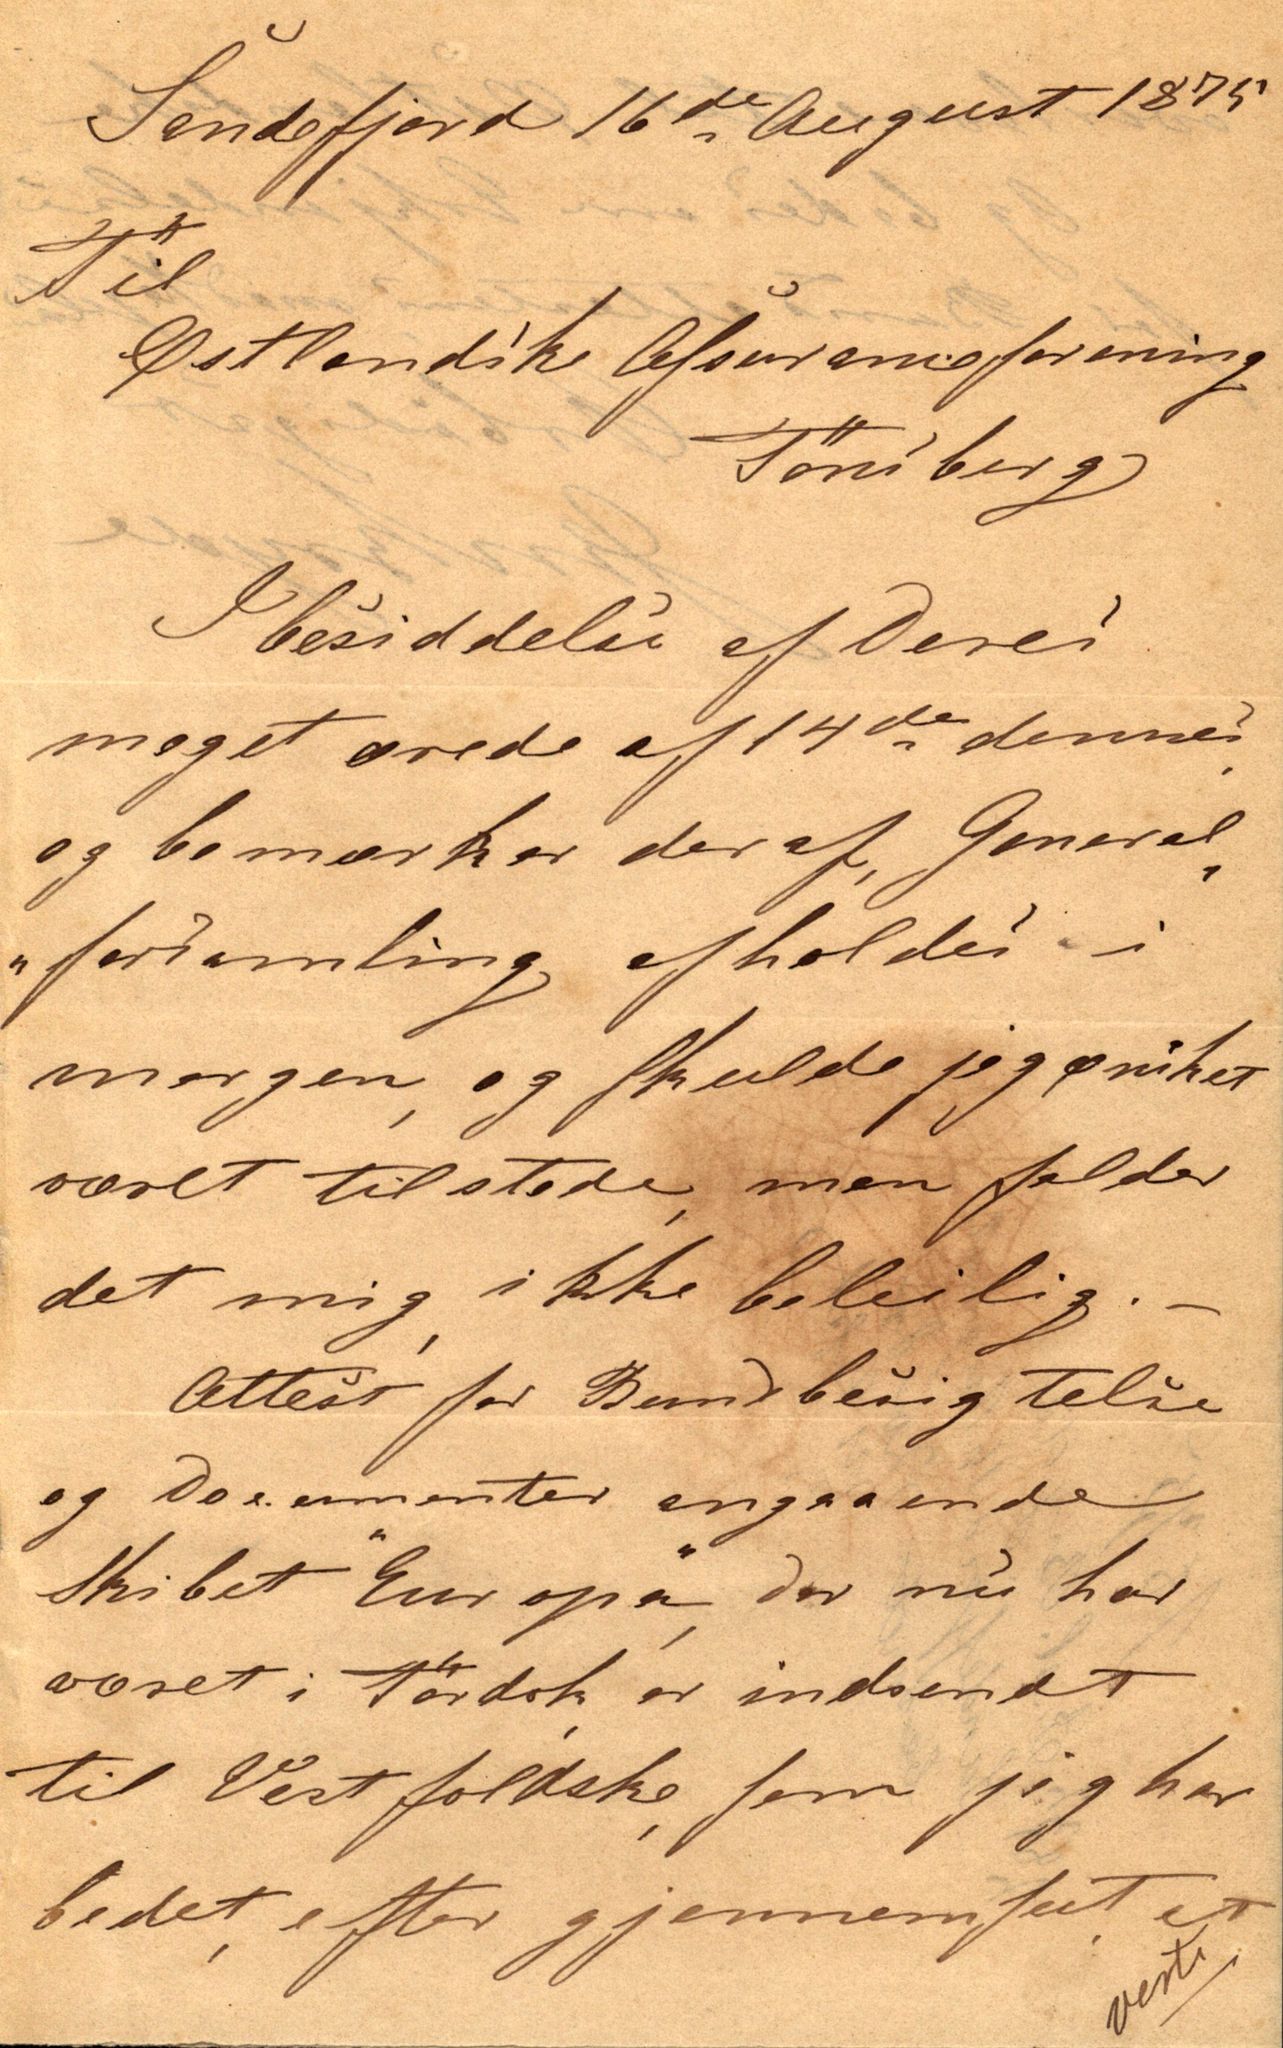 Sandefjord 16de August 1875
Til
Østlandske Assuranceforening
Tönsberg
I besiddelse af Deres
meget ærede af 14de dennes,
og bemærker deraf, General„
„forsamling afholdes i
morgen, og skulde jeg ønsket
været tilstede, men falder
det mig, ikke beleilig. —
Attest for Bundbesigtelse
og Documenter angaaende
Skibet "Europa", der nu har
været i Tördok, er indsendt
til Vestfoldske, som jeg har
bedet, efter gjennemseet, at
verte